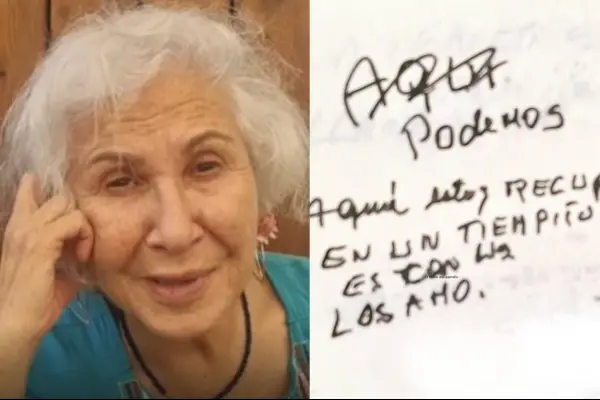 PODEMOS
Aquí estoy RECUP
EN UN TIEMPITO
ES CON US
LOS AMO.